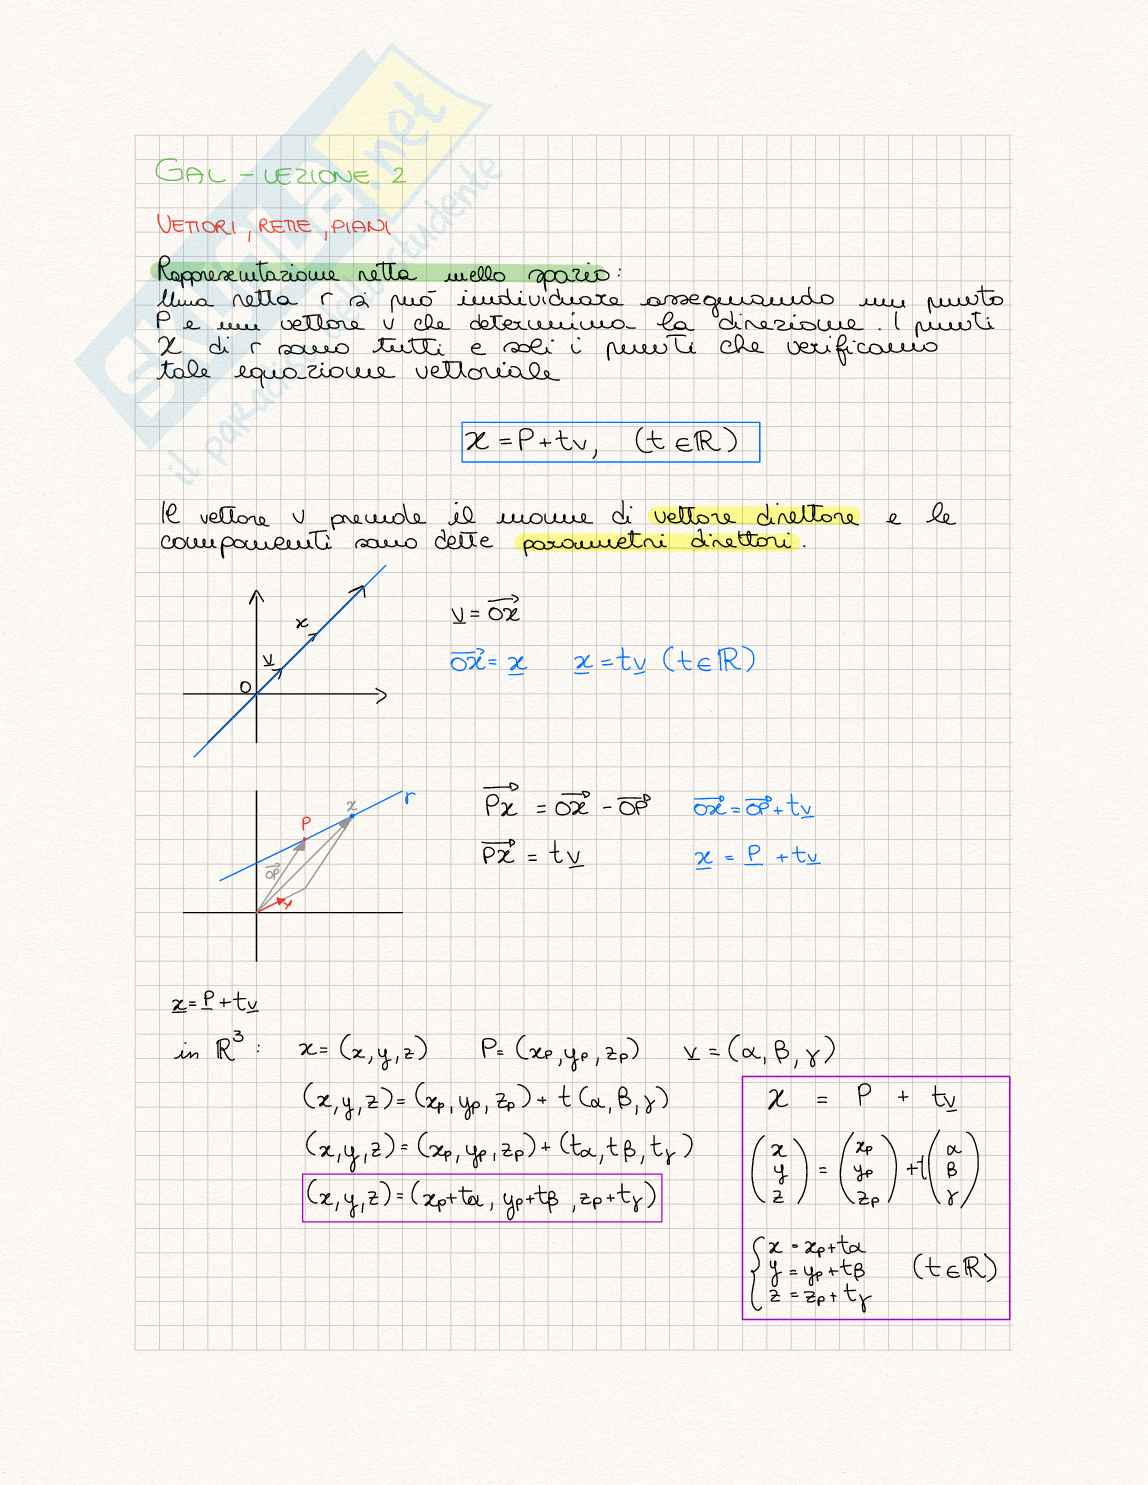 GAL - LEZIONE 2
VETTORI, RETTE, PIANI
Rappresentazione retta nello spazio:
Una retta r si può individuare assegnando un punto
P e un vettore v che determina la direzione. I punti
X di r sono tutti e soli i punti che verificano
tale equazione vettoriale
x = P + tv, (t ∈ ℝ)
Il vettore v prende il nome di vettore direttore e le
componenti sono dette parametri direttori.
x
v
O
v = OX
OX = x x = tv (t ∈ ℝ)
r
x
P
OP
v
PX = OX - OP OX = OP + tv
PX = tv x = P + tv
x = P + tv
in ℝ³: x = (x, y, z) P = (xp, yp, zp) v = (α, β, γ)
(x, y, z) = (xp, yp, zp) + t (α, β, γ)
(x, y, z) = (xp, yp, zp) + (tα, tβ, tγ)
(x, y, z) = (xp + tα, yp + tβ, zp + tγ)
x = P + tv
(x y z) = (xp yp zp) + t (α β γ)
x = xp + tα
y = yp + tβ (t ∈ ℝ)
z = zp + tγ
SKUOLA.net